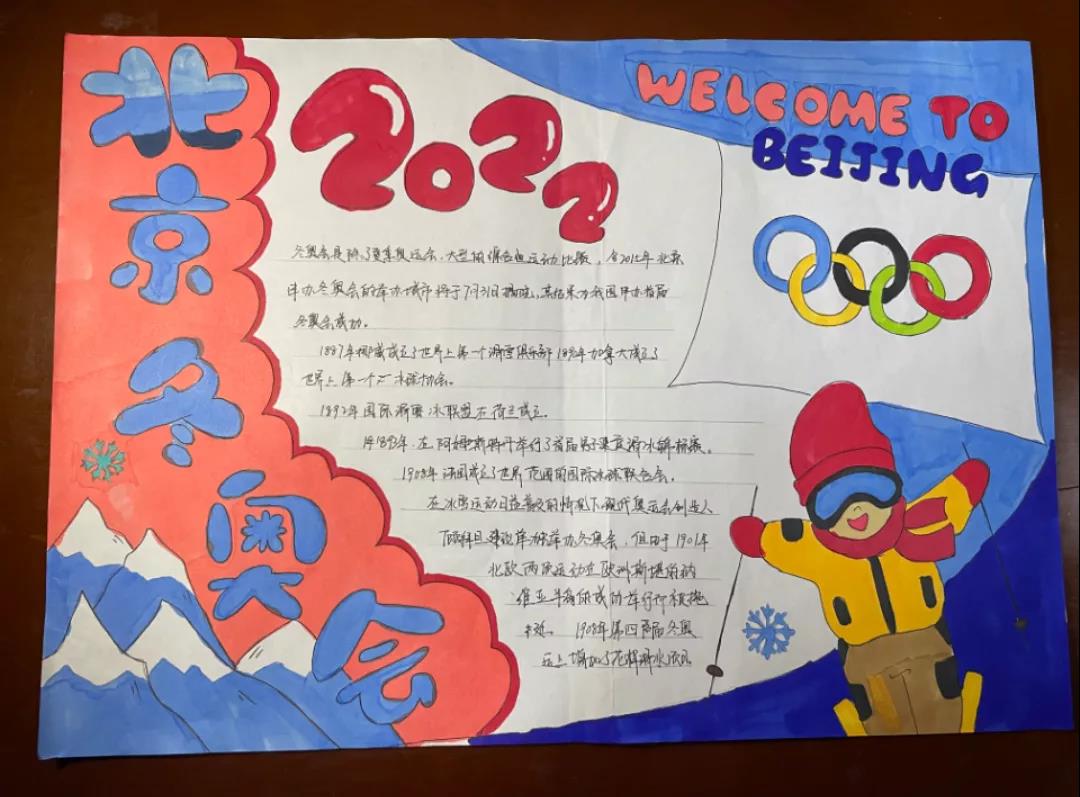 北京冬奥会
2022
WELCOME TO
BEIJING
冬奥会是除了夏季奥运会,大型的综合性运动比赛,
申办冬奥会的举办城市将于7月31日揭晓,其结果为我国申办首届
冬奥会成功。
1887年挪威成立了世界上第一个滑雪俱乐部 1890年加拿大成立了
世界上第一个 冰球协会。
1892年国际滑 冰联盟在荷兰成立。
1893年,在阿姆斯特丹举行了首届男子速度滑冰锦标赛。
1908年法国成立了世界范围的国际冰球联合会。
在冰雪运动日益普及的情况下现代奥运会创始人
顾拜旦建议单独举办冬奥会,但由于1901年
北欧两项运动在欧洲斯堪的纳
维亚半岛
1908年第四届
上增加了花样滑冰项目